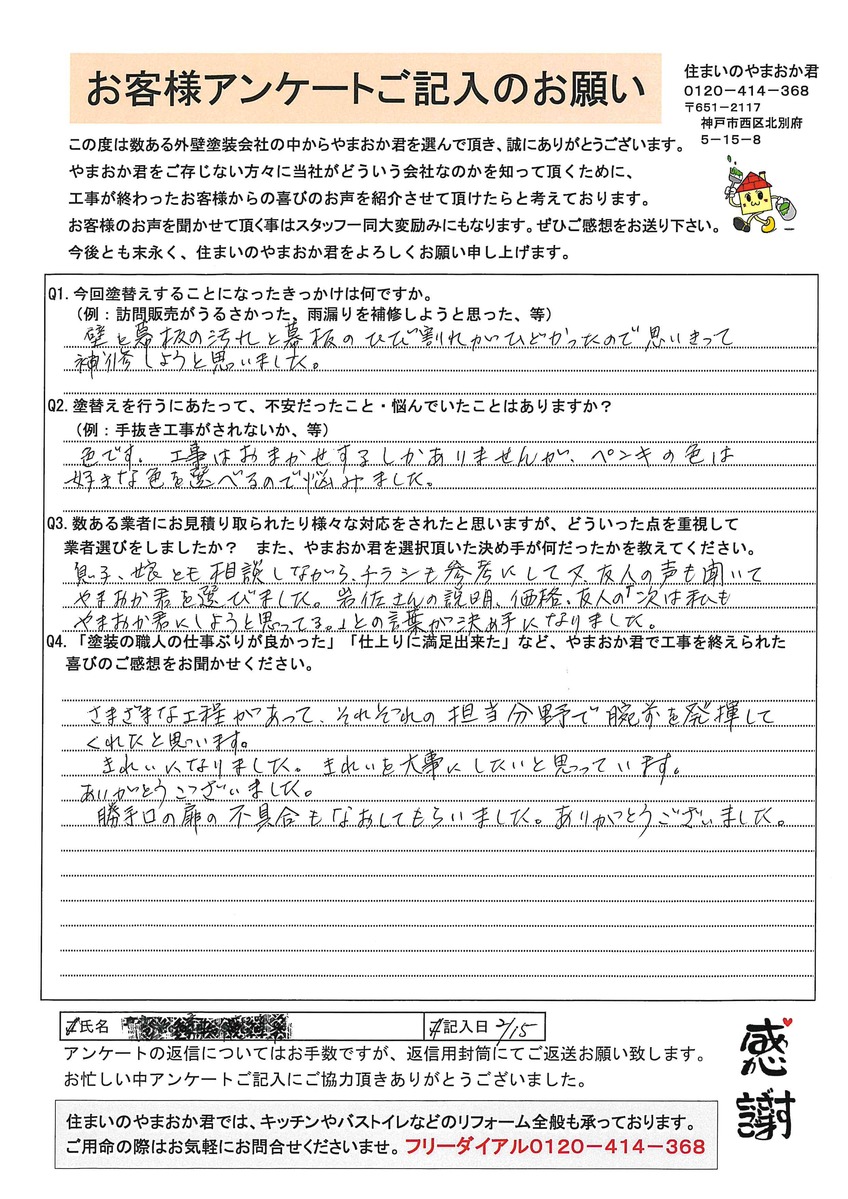 お客様アンケートご記入のお願い
住まいのやまおか君
0120-414-368
〒651-2117
神戸市西区北別府
5-15-8
この度は数ある外壁塗装会社の中からやまおか君を選んで頂き、誠にありがとうございます。
やまおか君をご存じない方々に当社がどういう会社なのかを知って頂くために、
工事が終わったお客様からの喜びのお声を紹介させて頂けたらと考えております。
お客様のお声を聞かせて頂く事はスタッフ一同大変励みにもなります。ぜひご感想をお送り下さい。
今後とも末永く、住まいのやまおか君をよろしくお願い申し上げます。
Q1.今回塗替えすることになったきっかけは何ですか。
（例：訪問販売がうるさかった、雨漏りを補修しようと思った、等）
壁と幕板の汚れと幕板のひび割れがひどかったので思いきって
補修しようと思いました。
Q2.塗替えを行うにあたって、不安だったこと・悩んでいたことはありますか？
（例：手抜き工事がされないか、等）
色です。工事はおまかせするしかありませんが、ペンキの色は
好きな色を選べるので悩みました。
Q3.数ある業者にお見積り取られたり様々な対応をされたと思いますが、どういった点を重視して
業者選びをしましたか？　また、やまおか君を選択頂いた決め手が何だったかを教えてください。
息子、娘とも相談しながら、チラシも参考にして又、友人の声も聞いて
やまおか君を選びました。岩佐さんの説明、価格、友人の「次は私も
やまおか君にしようと思ってる。」との言葉が決め手になりました。
Q4.「塗装の職人の仕事ぶりが良かった」「仕上りに満足出来た」など、やまおか君で工事を終えられた
喜びのご感想をお聞かせください。
さまざまな工程があって、それぞれの担当分野で腕前を発揮して
くれたと思います。
きれいになりました。きれいを大事にしたいと思っています。
ありがとうございました。
勝手口の扉の不具合もなおしてもらいました。ありがとうございました。
氏名
記入日 2/15
アンケートの返信についてはお手数ですが、返信用封筒にてご返送お願い致します。
お忙しい中アンケートご記入にご協力頂きありがとうございました。
感謝
住まいのやまおか君では、キッチンやバストイレなどのリフォーム全般も承っております。
ご用命の際はお気軽にお問合せくださいませ。フリーダイアル0120-414-368